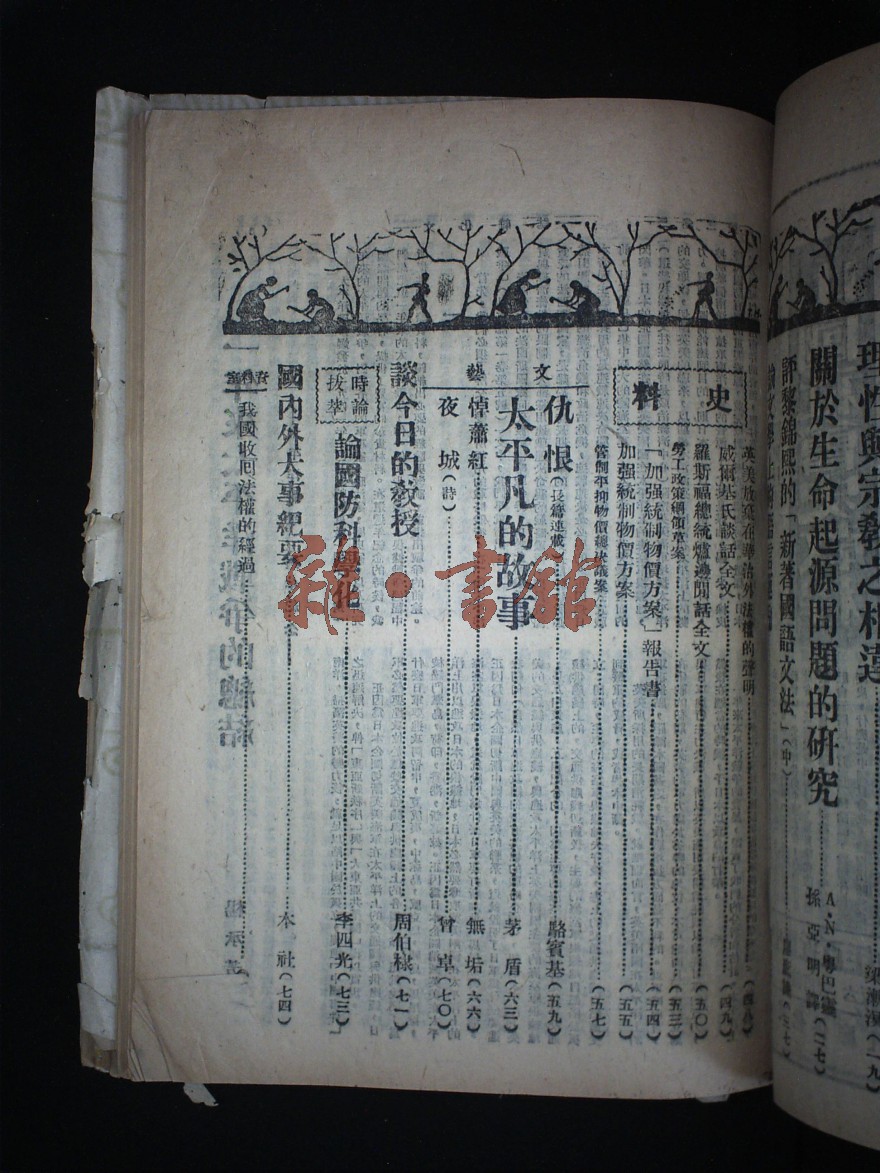 理性與宗教之相違 梁漱溟(一九)
關於生命起源問題的研究 A·N·奧巴靈 孫亞明譯(二七)
評黎錦熙的「新著國語文法」(中)
史料
英美放棄在華治外法權的聲明
威爾基氏談話全文(四九)
羅斯福總統爐邊閒話全文(五〇)
勞工政策綱領草案(五三)
「加强統制物價方案」報告書(五四)
加强統制物價方案(五五)
管制平抑物價總决議案(五七)
文藝
仇恨(長篇連載) 駱賓基(五九)
太平凡的故事 茅盾(六三)
悼蕭紅 無垢(六六)
夜城(詩) 曾卓(七〇)
談今日的教授 周伯棣(七一)
時論拔萃
論國防科學化 李四光(七三)
國內外大事紀要 本社(七四)
資料室
我國收回法權的經過
雜·書館